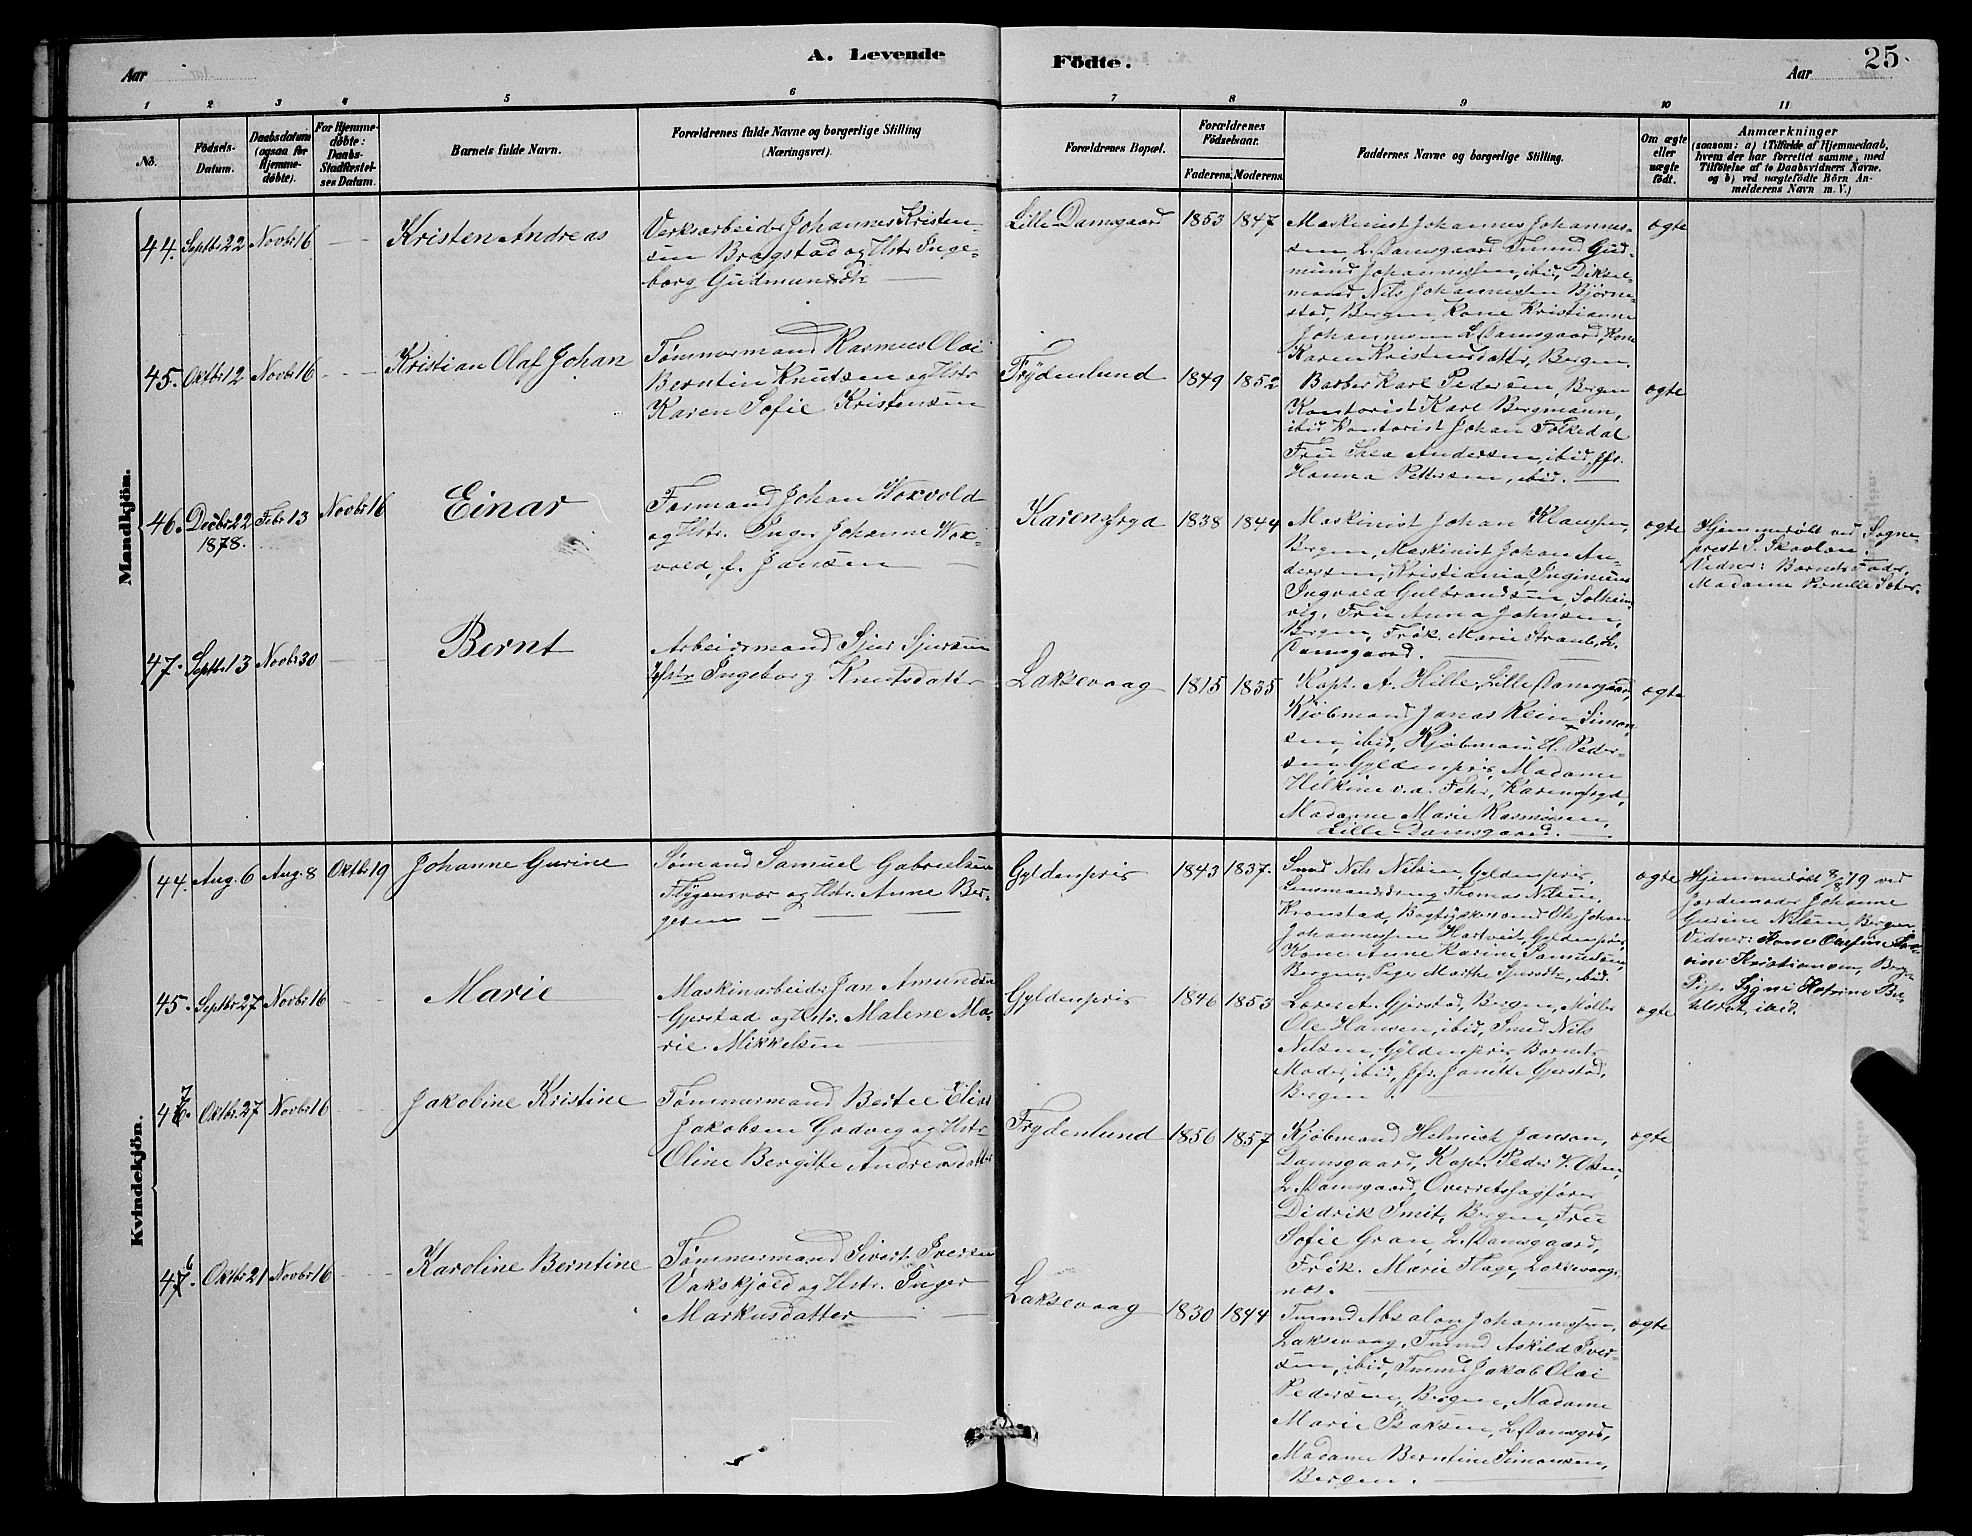 A. Levende
Födte.
25.
Aar
Aar
1 2 3 4 5 6 7 8 9 10 11
No.
Födsels-
Datum.
Daabsdatum
(ogsaa for
Hjemme-
döbte).
For Hjemme-
döbte:
Daabs-
Stadfæstel-
ses Datum.
Barnets fulde Navn.
Forældrenes fulde Navne og borgerlige Stilling
(Næringsvei).
Forældrenes Bopæl.
Forældrenes
Födselsaar.
Faderens. Moderens.
Faddernes Navne og borgerlige Stilling.
Om ægte
eller
uægte
födt.
Anmærkninger
(saasom: a) i Tilfælde af Hjemmedaab,
hvem der har forrettet samme, med
Tilföielse af to Daabsvidners Navne,
og b) ved uægtefödte Börn An-
melderens Navn m. V.)
Mandkjön.
44. Septbr 22 Novbr 16
Kristen Andreas
Verksarbeider Johannes Kristen-
sen Bragstad og Hstr Inge-
borg Gudmundsdtr
Lille Damsgaard 1853 1847
Maskinist Johannes Johannes-
sen, L. Damsgaard, Tmmd Gud-
mund Johannessen, ibid,
mand Nils Johannessen Bjørne-
stad, Bergen, Kone Kristianne
Johannessen L. Damsgaard, Kone
Karen Kristensdattr, Bergen.
ægte
45. Oktbr 12 Novbr 16
Kristian Olaf Johan
Tømmermand Rasmus Olai
Berntin Knutsen og Hstr
Karen Sofie Kristensen
Frydenlund 1849 1852
Barber Karl Pedersen, Bergen
Kontorist Karl Bergmann,
ibid Kontorist Johan Folkedal
Fru Thea Andersen, ibid, Jfr.
Hanna Pettersen, ibid.
ægte
46. Decbr 22 Febr 13 Novbr 16
1878.
Einar
Formand Johan Woxvold
og Hstr. Inger Johanne Wox-
vold, f. Jansen
Karensfryd 1838 1844
Maskinist Johan Klaussen,
Bergen, Maskinist Johan An-
dersen, Kristiania Ingeniør
Ingvald Gulbrandsen, Solheim-
vig, Fru Anna Johnsen,
Bergen, Frøk. Marie Straube, L.
Damsgaard.
ægte
Hjemmedøbt ved Sogne-
prest P. Skavlan.
Vidner: Barnets Fader,
Madame Pernille Sæter.
47. Septbr 13 Novbr 30
Bernt
Arbeidsmand Sjur Sjursen
Hstr Ingeborg Knutsdatter
Laksevaag 1815 1835
Kapt. A. Hille, Lille Damsgaard,
Kjøbmand Jonas Rein Simon-
sen, ibid, Kjøbmand H. Peder-
sen, Gyldenpris, Madame
Helkine v.d. Fehr, Karensfryd,
Madame Marie Rasmusen,
Lille Damsgaard.
ægte
Kvindekjön.
44. Aug. 6 Aug. 8 Oktbr 19
Johanne Gurine
Sømand Samuel Gabrielsen
Flygansvær og Hstr. Anne Ber-
gesen
Gyldenpris 1843 1837.
Smed Nils Nilsen, Gyldenpris,
Lensmandsdreng Thomas Nilsen,
Kronstad, Bogtrykkersvend Ole Johan
Johannessen Hartveit, Gyldenpris,
Kone Anne Karine Samuelsen,
Bergen, Pige Marthe Sjursdtr, ibid.
ægte
Hjemmedøbt 8/8 79 ved
Jordemoder Johanne
Gurine Nilsen, Bergen
Vidner: Kone
Kristiansen, Bergen
Pige
ibid.
45. Septbr 27 Novbr 16
Marie
Maskinarbeider Jan Amundsen
Gjerstad og Hstr. Malene Ma-
rie Mikkelsen
Gyldenpris 1846 1853
Lærer A. Gjerstad, Bergen, Møller
Ole Hansen, ibid, Smed Nils
Nilsen, Gyldenpris, Barnets
Moder, ibid, Jfr. Janitte Gjerstad,
Bergen.
ægte
7
46. Oktbr 27 Novbr 16
Jakobine Kristine
Tømmermand Bertel Elias
Jakobsen Godvig og Hstr
Oline Bergitte Andreasdatter
Frydenlund 1856 1857
Kjøbmand Helmich Janson,
Damsgaard, Kapt. Peder V. Olsen,
L. Damsgaard, Overretssagfører
Didrik Smit, Bergen, Fru
Sofie Gran, L. Damsgaard,
Frøk. Marie Hage, Laksevaag-
nes.
ægte
6
47. Oktbr 21 Novbr 16
Karoline Berntine
Tømmermand Sivert Iversen
Vakskjold og Hstr. Inger
Markusdatter
Laksevaag 1830 1844
Tmmd Absalon Johannessen,
Laksevaag, Tmmd Askild Iver-
sen, ibid, Tmmd Jakob Olai
Pedersen, Bergen, Madame
Marie Isaksen, L. Damsgrd,
Madame Berntine Simonsen,
Bergen.
ægte